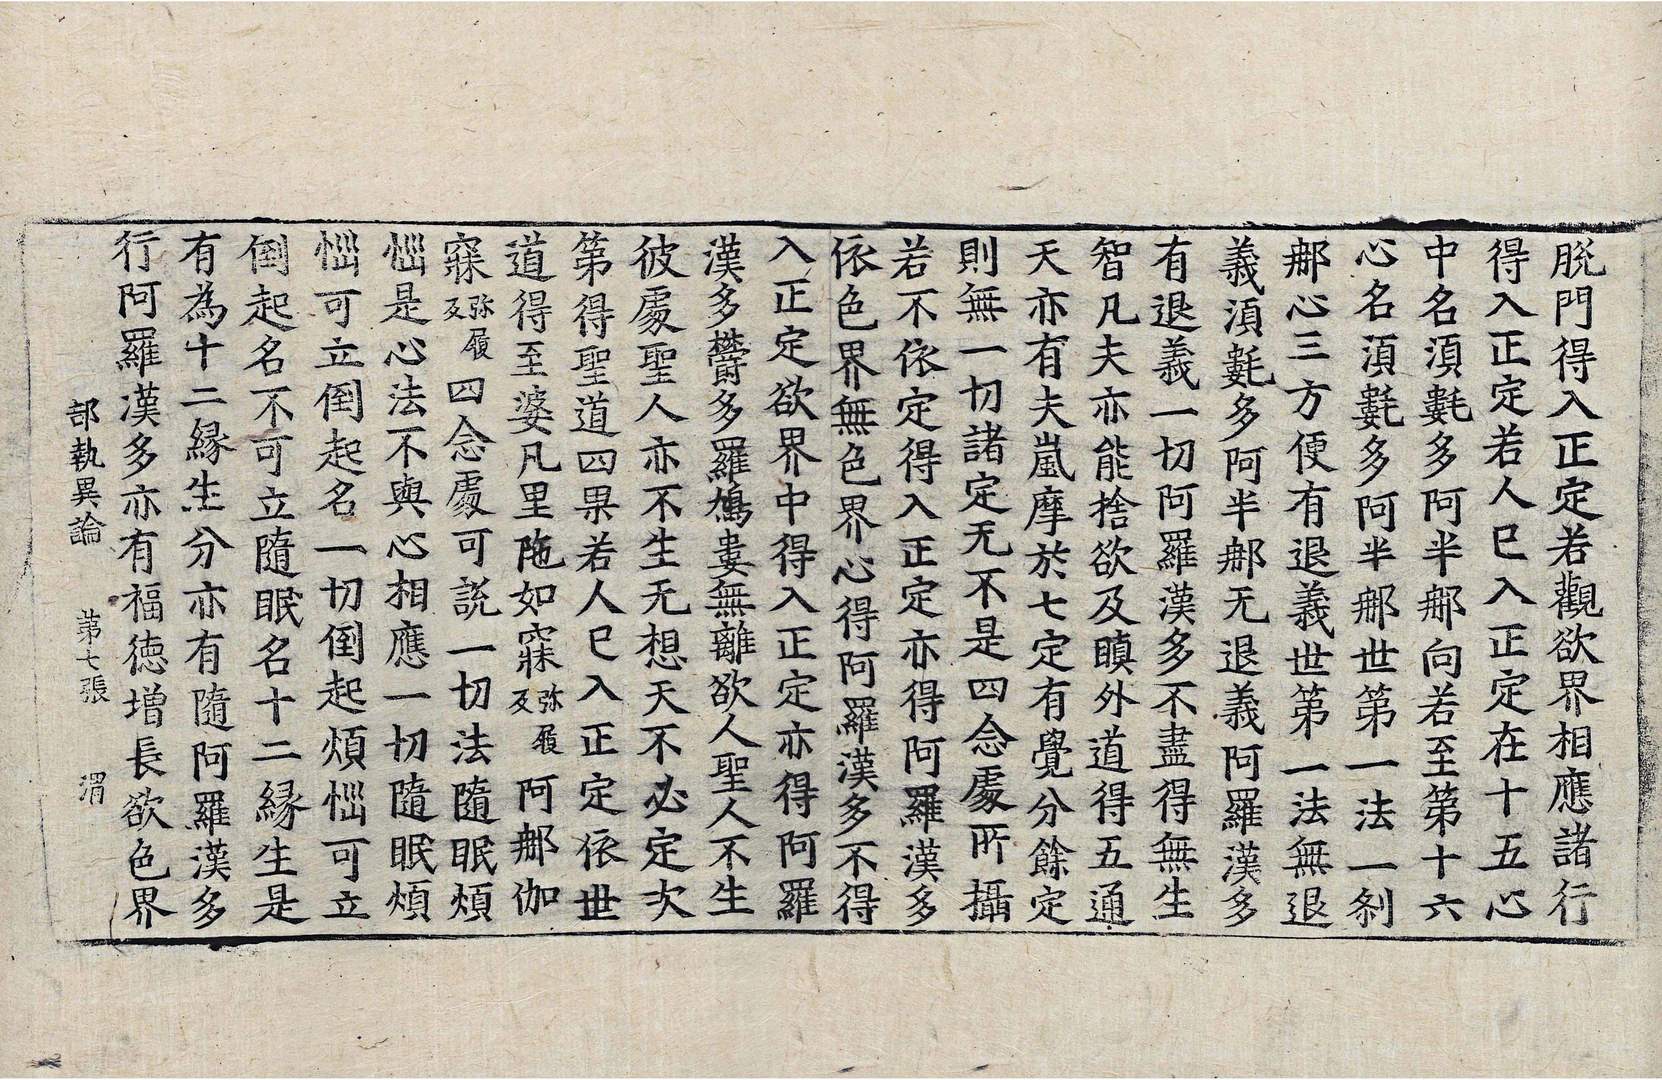 脫門得入正定若觀欲界相應諸行
得入正定若人已入正定在十五心
中名湏氀多阿半那向若至第十六
心名湏氀多阿半那世第一法一剎
那心三方便有退義世第一法無退
義湏氀多阿半那无退義阿羅漢多
有退義一切阿羅漢多不盡得無生
智凡夫亦能捨欲及瞋外道得五通
天亦有夫嵐摩於七定有覺分餘定
則無一切諸定无不是四念處所攝
若不依定得入正定亦得阿羅漢多
依色界無色界心得阿羅漢多不得
入正定欲界中得入正定亦得阿羅
漢多欝多羅鳩婁無離欲人聖人不生
彼處聖人亦不生无想天不必定次
第得聖道四果若人已入正定依世
道得至婆凡里陁如寐弥履反阿那伽
寐弥履反四念處可說一切法隨眠煩
惱是心法不與心相應一切隨眠煩
惱可立倒起名一切倒起煩惱可立
倒起名不可立隨眠名十二縁生是
有為十二縁生分亦有隨阿羅漢多
行阿羅漢多亦有福德增長欲色界
部執異論　第七張　渭